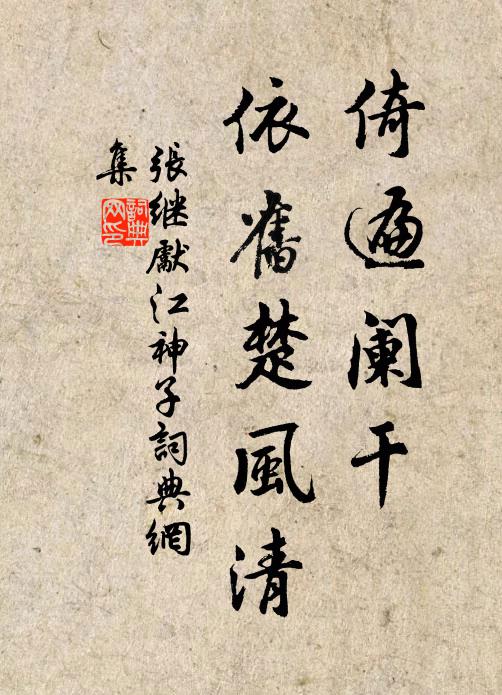 倚遍阑干
依舊楚風清
張继獻江神子詞典網
集
詞典
网印